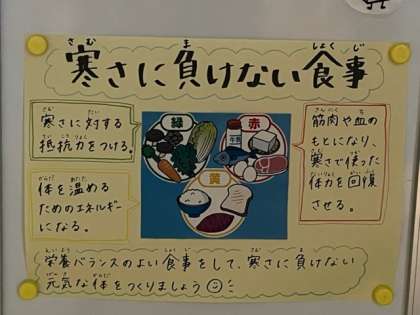 寒さに負けない食事
寒さに対する
抵抗力をつける。
体を温める
ためのエネルギー
になる。
緑
赤
黄
筋肉や血の
もとになり、
寒さで使った
体力を回復
させる。
栄養バランスのよい食事をして、寒さに負けない
元気な体をつくりましょう